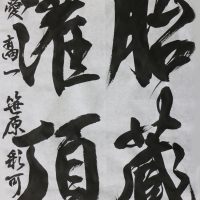 胎蔵
灌頂
愛 高一 笹原